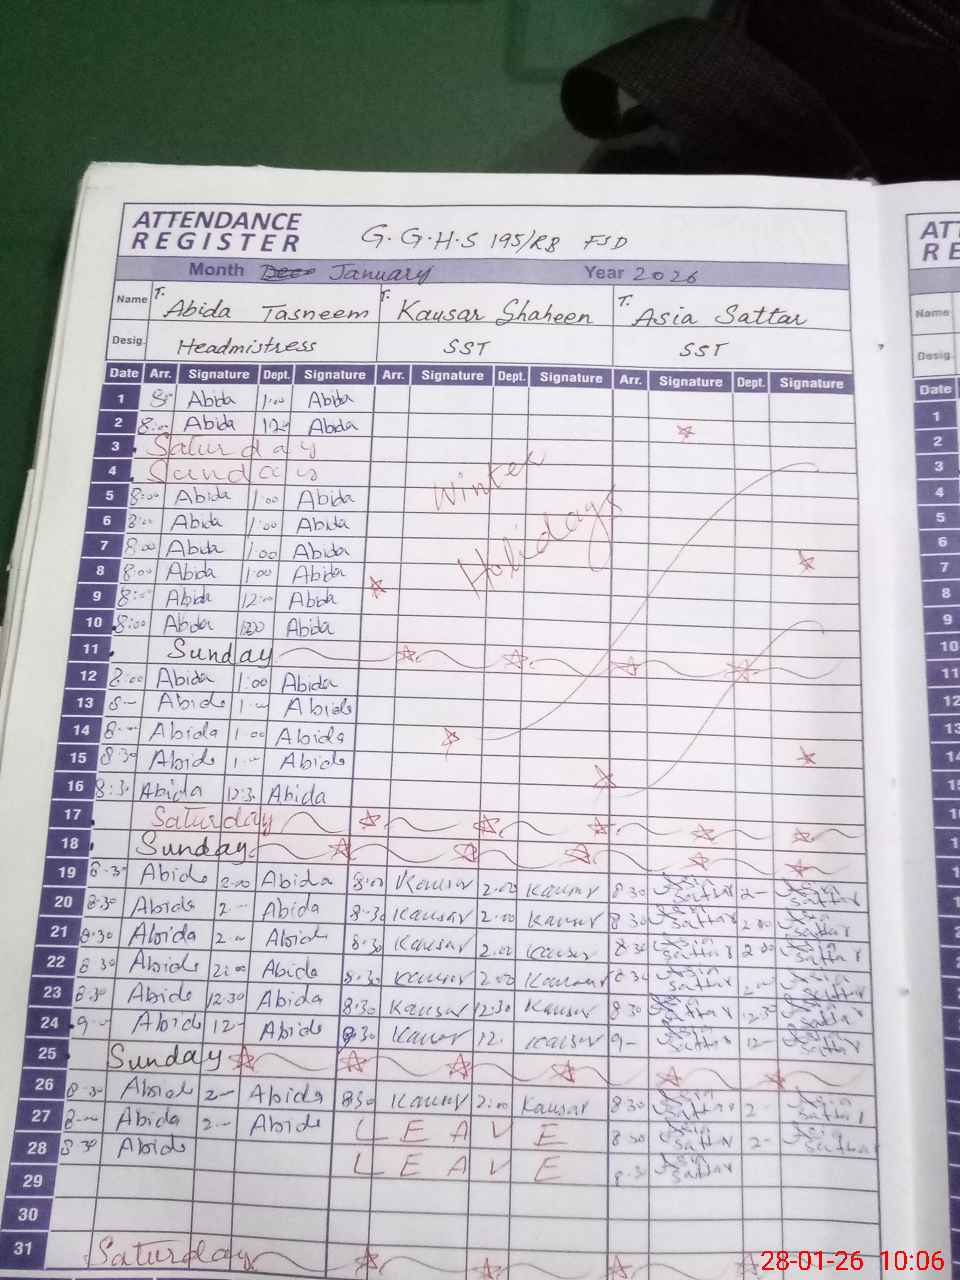 ATTENDANCE
REGISTER
G.G.H.S 195/RB FSD
Month January Year 2026
Name T. Abida Tasneem T. Kausar Shaheen T. Asia Sattar
Desig. Headmistress SST SST
Date Arr. Signature Dept. Signature Arr. Signature Dept. Signature Arr. Signature Dept. Signature
1 Abida 1:00 Abida
2 8:00 Abida Abida
3 Saturday
4 Sunday
5 8:00 Abida 1:00 Abida
Winter
6 8:00 Abida 1:00 Abida
7 8:00 Abida 1:00 Abida
Holidays
8 8:00 Abida 1:00 Abida
9 8:00 Abida 12:00 Abida
10 8:00 Abida Abida
11 Sunday
12 8:00 Abida 1:00 Abida
13 Abida Abida
14 Abida 1:00 Abida
15 8:30 Abida Abida
16 8:30 Abida 12:30 Abida
17 Saturday
18 Sunday
19 8:30 Abida 2:00 Abida 8:00 Kausar 2:00 Kausar 8:30 Asia Sattar 2- Asia Sattar
20 8:30 Abida 2- Abida 8:30 Kausar 2:00 Kausar 8:30 Asia Sattar 2:00 Asia Sattar
21 8:30 Abida 2- Abida 8:30 Kausar 2:00 Kausar 8:30 Asia Sattar 2:00 Asia Sattar
22 8:30 Abida 2:00 Abida 8:30 Kausar 2:00 Kausar 8:30 Asia Sattar Asia Sattar
23 8:30 Abida 12:30 Abida 8:30 Kausar 12:30 Kausar 8:30 Asia Sattar 12:30 Asia Sattar
24 9- Abida 12- Abida 8:30 Kausar 12. Kausar 9- Asia Sattar 12- Asia Sattar
25 Sunday
26 8:30 Abida 2- Abida 8:30 Kausar 2:00 Kausar 8:30 Asia Sattar 2- Asia Sattar
27 Abida 2- Abida LEAVE 8:30 Asia Sattar 2- Asia Sattar
28 8:30 Abida LEAVE 8:30 Asia Sattar
29
30
31 Saturday
Name
Desig.
Date
1
2
3
4
5
6
7
8
9
10
11
12
13
14
15
28-01-26 10:06